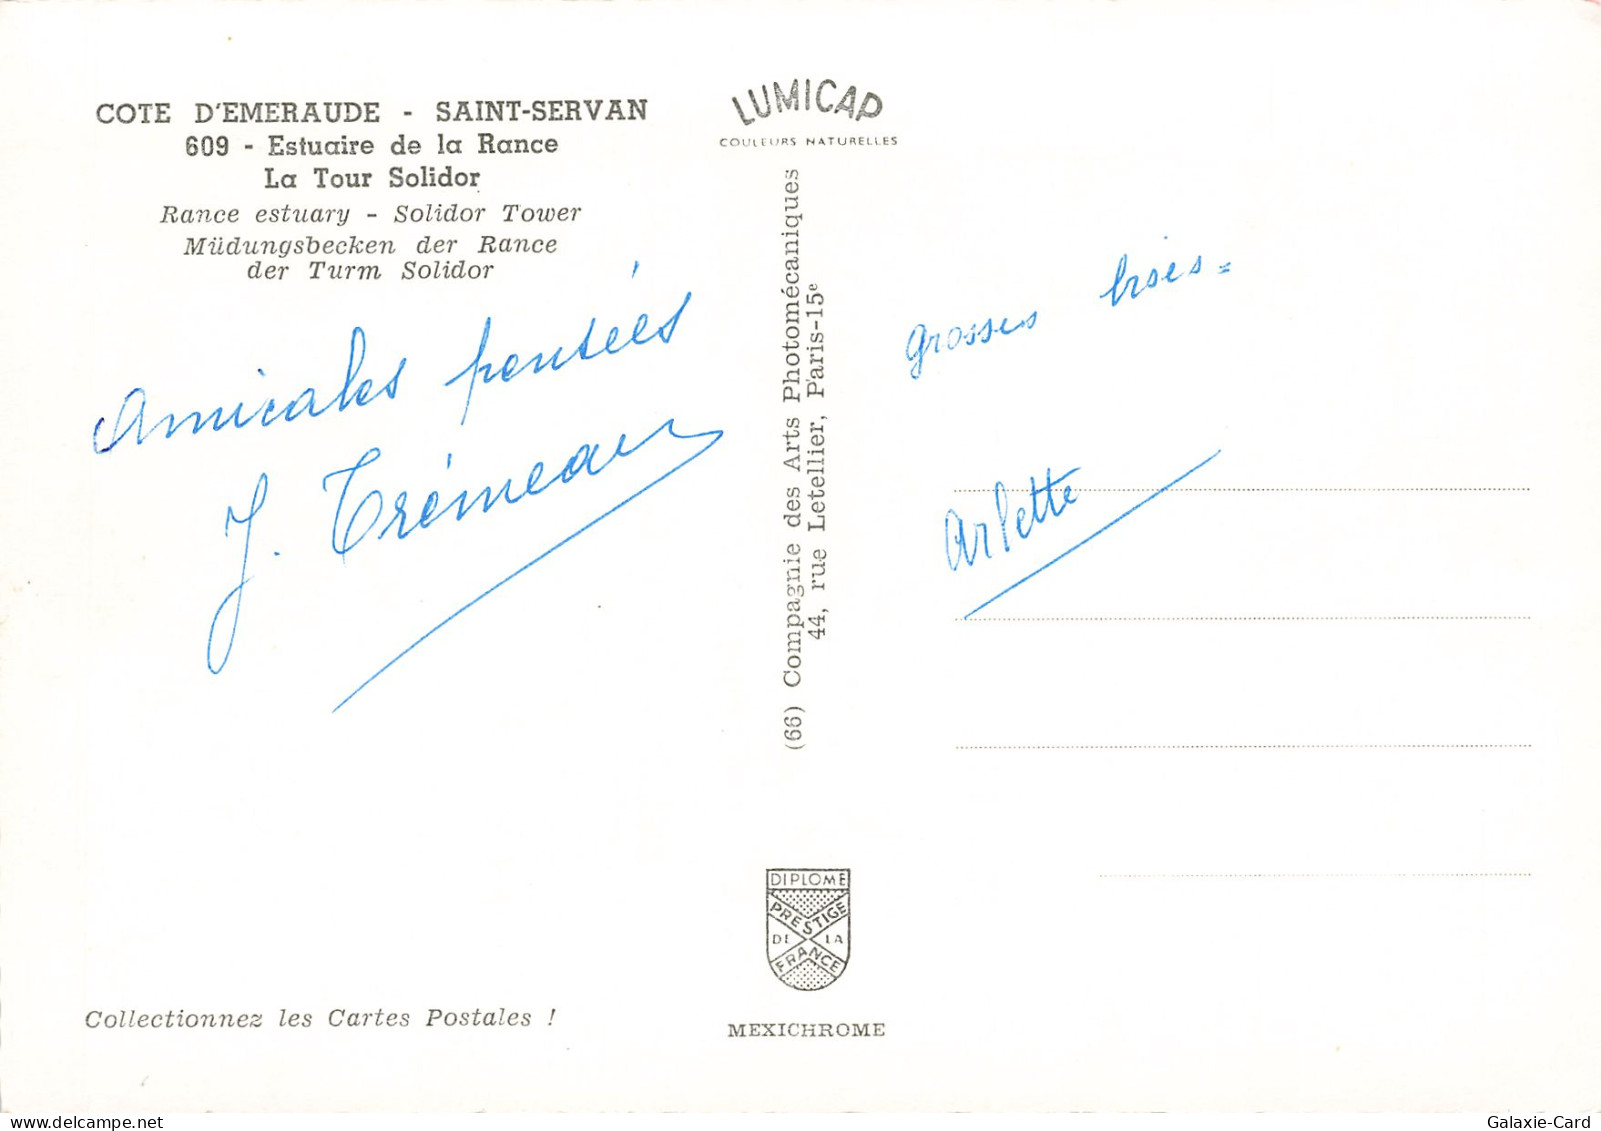 COTE D'EMERAUDE - SAINT-SERVAN
609 - Estuaire de la Rance
La Tour Solidor
Rance estuary - Solidor Tower
Müdungsbecken der Rance
der Turm Solidor
Amicales pensées
J. Trémeau
Collectionnez les Cartes Postales !
LUMICAP
COULEURS NATURELLES
(66) Compagnie des Arts Photomécaniques
44, rue Letellier, Paris-15e
DIPLOME
PRESTIGE
DE LA
FRANCE
MEXICHROME
grosses bises
Arlette
Galaxie-Card